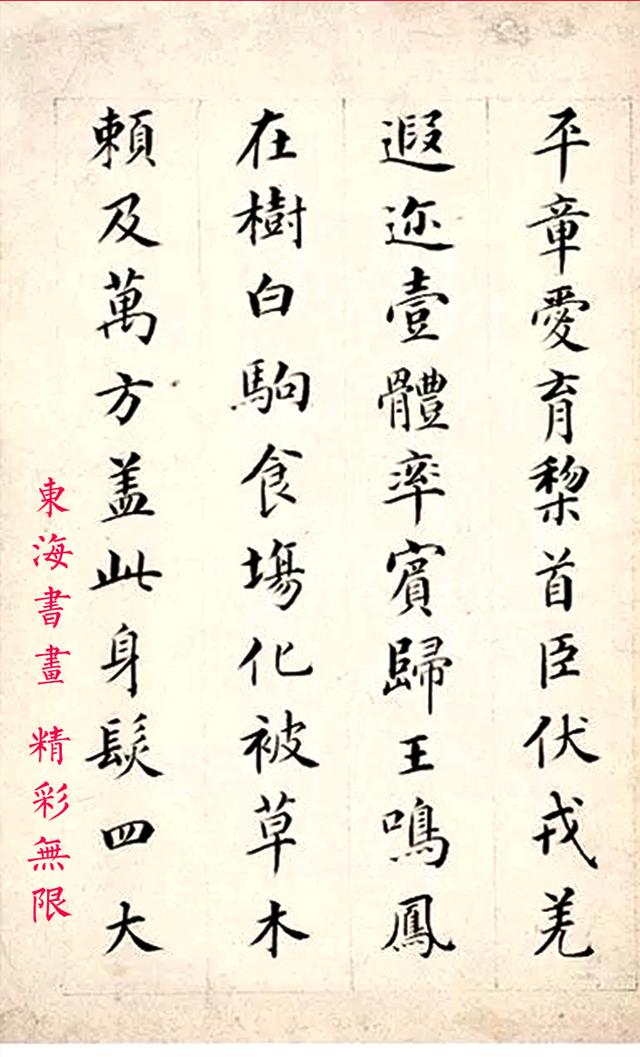 平章愛育黎首臣伏戎羌
遐迩壹體率賓歸王鳴鳳
在樹白駒食塲化被草木
頼及萬方盖此身髮四大
東海書畫 精彩無限